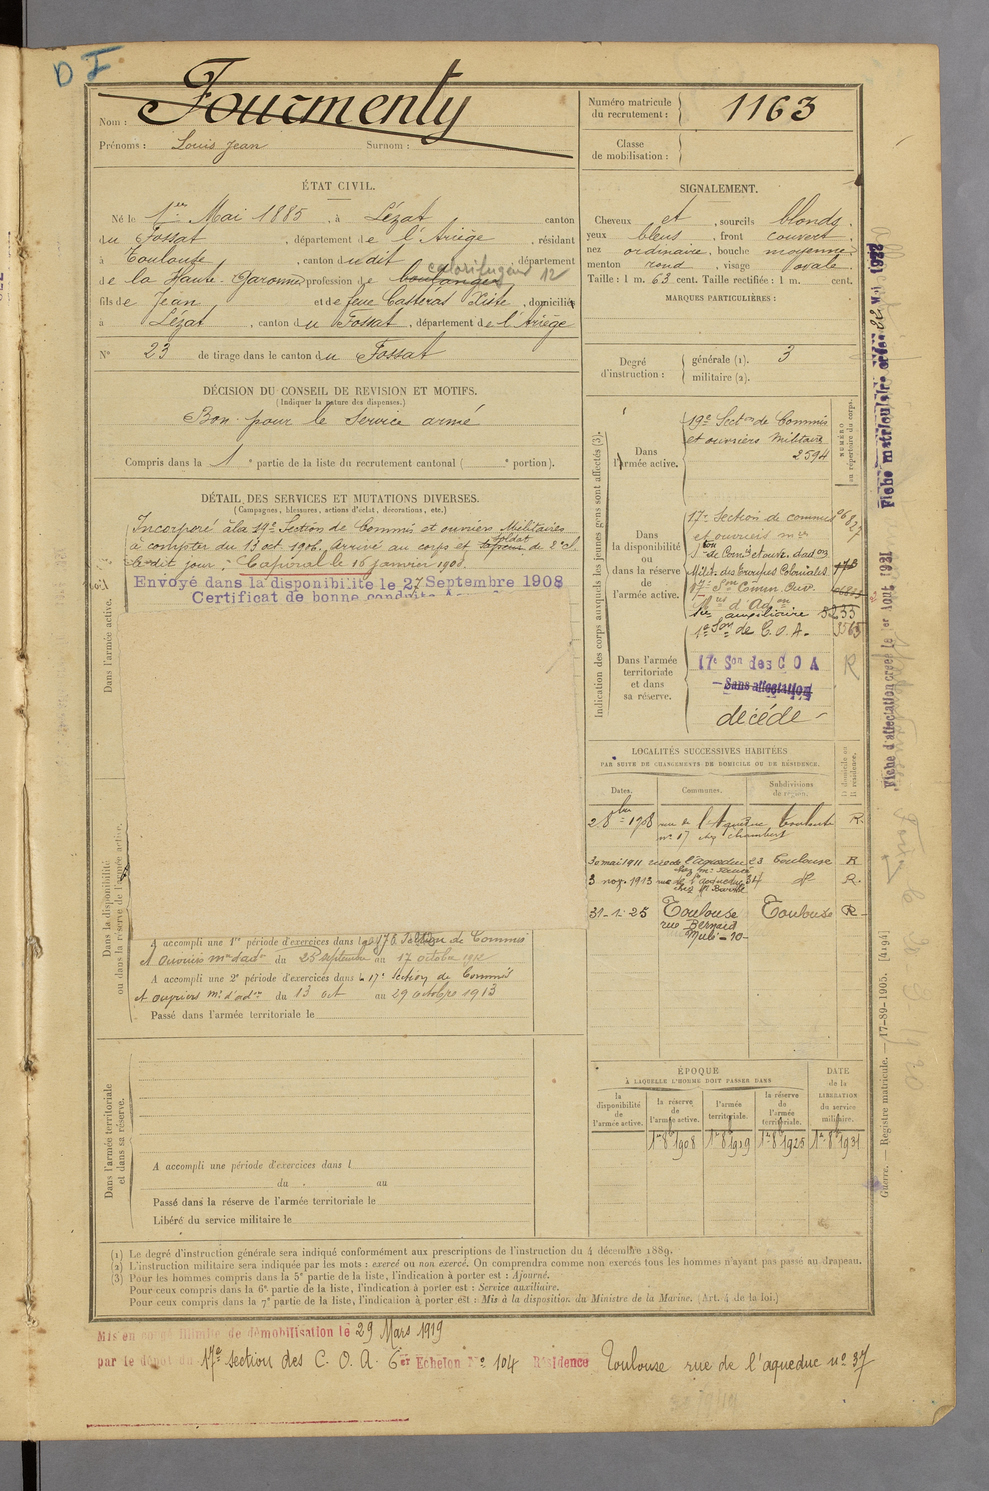 D I
Nom : Fourmenty
Prénoms : Louis Jean Surnom :
Numéro matricule du recrutement : 1163
Classe de mobilisation :
ÉTAT CIVIL.
Né le 1er Mai 1885, à Lézat canton
du Fossat, département de l'Ariège, résidant
à Toulouse, canton dudit, département
calorifugeur 12
de la Haute-Garonne profession de boulanger
fils de Jean et de feue Casteras Xiste, domiciliés
à Lézat, canton du Fossat, département de l'Ariège
N° 23 de tirage dans le canton du Fossat
SIGNALEMENT.
Cheveux et, sourcils blonds.
yeux bleus, front couvert
nez ordinaire, bouche moyenne
menton rond, visage ovale.
Taille : 1 m. 63 cent. Taille rectifiée : 1 m. cent.
MARQUES PARTICULIÈRES :
DÉCISION DU CONSEIL DE REVISION ET MOTIFS.
(Indiquer la nature des dispenses.)
Bon pour le service armé
Compris dans la 1e partie de la liste du recrutement cantonal ( e portion).
Degré d'instruction : générale (1). 3
militaire (2).
DÉTAIL DES SERVICES ET MUTATIONS DIVERSES.
(Campagnes, blessures, actions d'éclat, décorations, etc.)
Incorporé à la 19e Section de Commis et ouvriers Militaires
à compter du 13 oct. 1906. Arrivé au corps et soldat de 2e cl.
ledit jour. Caporal le 16 janvier 1908.
Envoyé dans la disponibilité le 27 Septembre 1908
Certificat de bonne conduite
Dans l'armée active.
Dans la disponibilité ou dans la réserve de l'armée active.
A accompli une 1re période d'exercices dans la 17e Section de Commis
et Ouvriers mres d'adon du 25 septembre au 17 octobre 1912
A accompli une 2e période d'exercices dans la 17e Section de Commis
et ouvriers m. d'adon du 13 oct au 29 octobre 1913
Passé dans l'armée territoriale le
Dans l'armée territoriale et dans sa réserve.
A accompli une période d'exercices dans l
du au
Passé dans la réserve de l'armée territoriale le
Libéré du service militaire le
Indication des corps auxquels les jeunes gens sont affectés (3).
NUMÉRO au répertoire du corps.
Dans l'armée active.
19e Secton de Commis
et ouvriers militaire
2594
Dans la disponibilité ou dans la réserve de l'armée active.
17e Section de commis
et ouvriers mre
Son de Comis et ouv. d'adon
Milit. des Troupes Coloniales
17e Son Comm. Ouv.
d'Adon
1re auxiliaire 5233
1e Son de C.O.A. 3565
Dans l'armée territoriale et dans sa réserve.
17e Son des C O A R
Sans affectation
décédé
LOCALITÉS SUCCESSIVES HABITÉES
PAR SUITE DE CHANGEMENTS DE DOMICILE OU DE RÉSIDENCE.
Dates. Communes. Subdivisions de région. D domicile ou R résidence.
2 8bre 1908 rue de l'Aqueduc Toulouse R.
no 17
30 mai 1911 rue de l'aqueduc 23 Toulouse R
3 nov. 1913 rue de l'aqueduc 34 do R.
31-1-25 Toulouse Toulouse R
rue Bernard
Mulé - 10 -
ÉPOQUE
À LAQUELLE L'HOMME DOIT PASSER DANS
DATE de la LIBÉRATION du service militaire.
la disponibilité de l'armée active. la réserve de l'armée active. l'armée territoriale. la réserve de l'armée territoriale.
1er 8bre 1908 1er 8bre 1919 1er 8bre 1925 1er 8bre 1931
(1) Le degré d'instruction générale sera indiqué conformément aux prescriptions de l'instruction du 4 décembre 1889.
(2) L'instruction militaire sera indiquée par les mots : exercé ou non exercé. On comprendra comme non exercés tous les hommes n'ayant pas passé au drapeau.
(3) Pour les hommes compris dans la 5e partie de la liste, l'indication à porter est : Ajourné.
Pour ceux compris dans la 6e partie de la liste, l'indication à porter est : Service auxiliaire.
Pour ceux compris dans la 7e partie de la liste, l'indication à porter est : Mis à la disposition du Ministre de la Marine. (Art. 4 de la loi.)
Mis en congé illimité de démobilisation le 29 Mars 1919
par le dépôt du 17e section des C. O. A. 6er Echelon No 104 Résidence Toulouse rue de l'aqueduc no 37
Fiche d'affectation créée le 1er Août 1921
Fiche matriculaire créée
Guerre. — Registre matricule. — 17-89-1905. [4194]